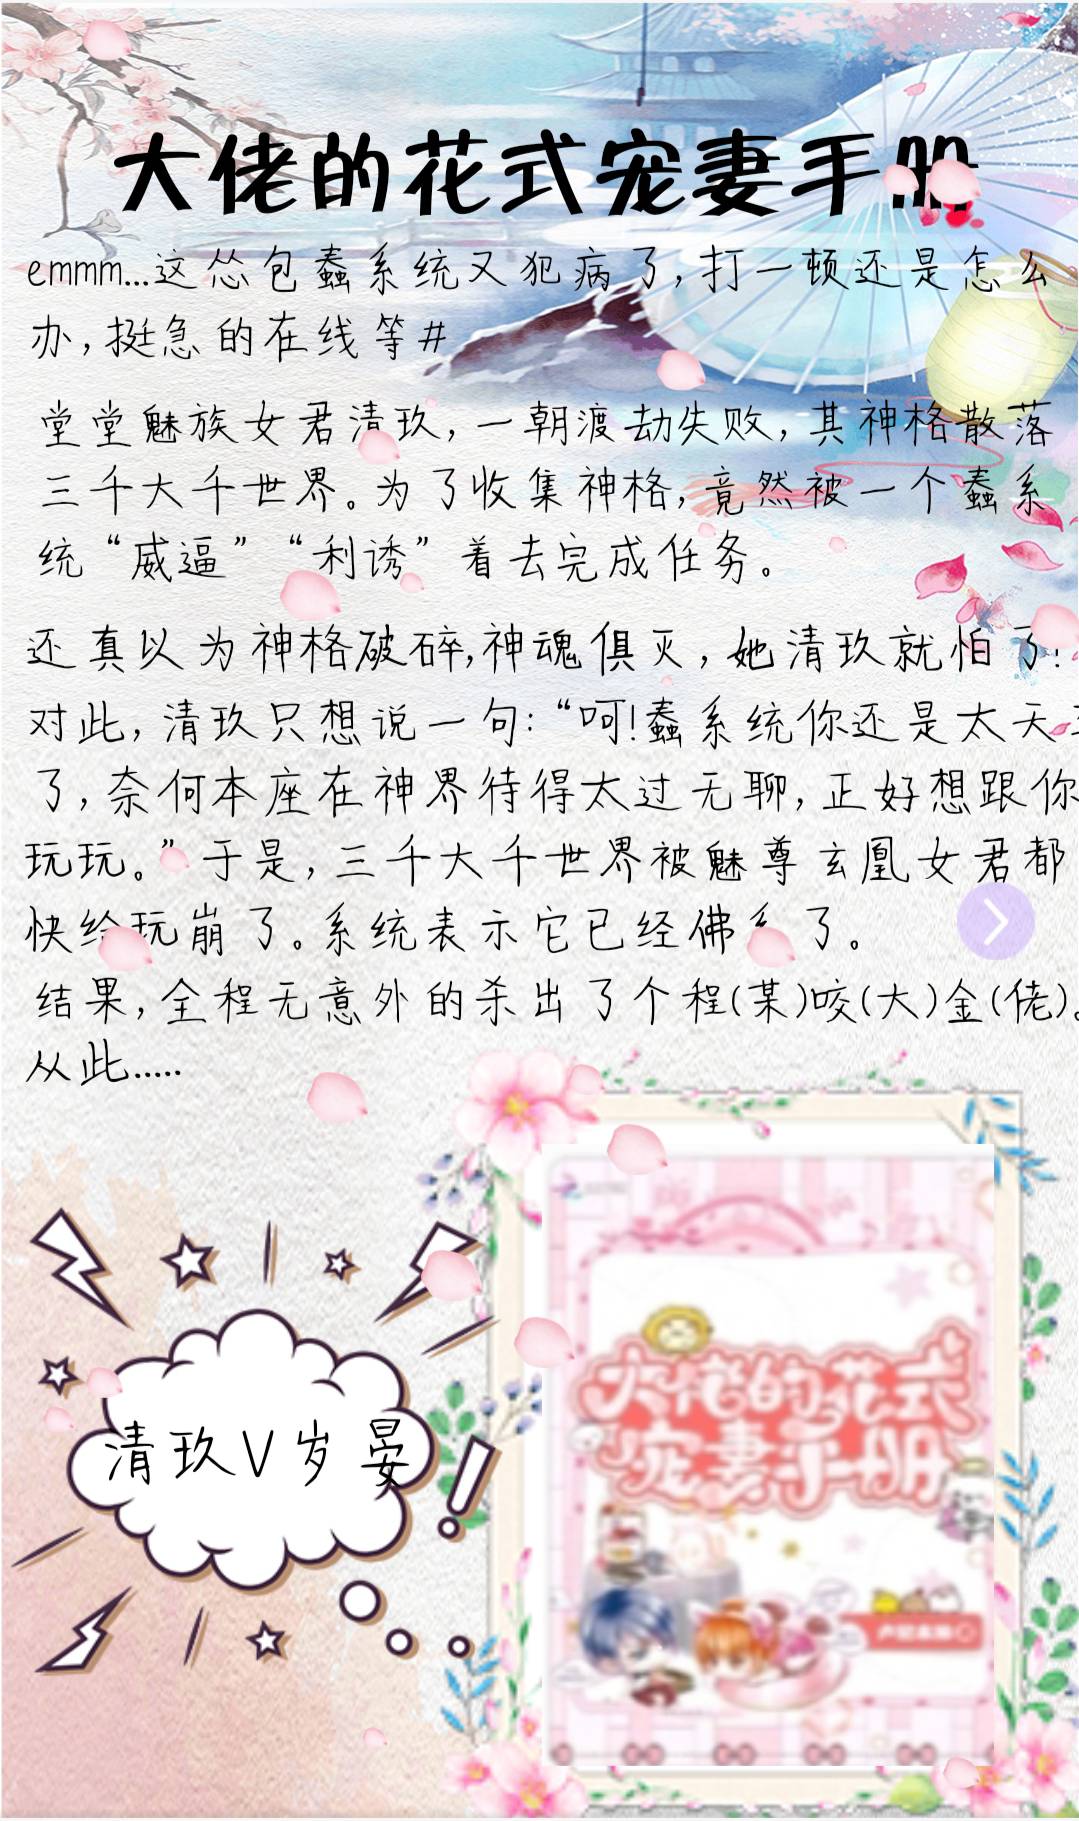 大佬的花式宠妻手册
emmm...这怂包蠢系统又犯病了,打一顿还是怎么
办,挺急的在线等#
堂堂魅族女君清玖,一朝渡劫失败,其神格散落
三千大千世界。为了收集神格,竟然被一个蠢系
统“威逼”“利诱”着去完成任务。
还真以为神格破碎,神魂俱灭,她清玖就怕了!
对此,清玖只想说一句:“呵!蠢系统你还是太天
了,奈何本座在神界待得太过无聊,正好想跟你
玩玩。”于是,三千大千世界被魅尊玄凰女君都
快给玩崩了。系统表示它已经佛系了。
结果,全程无意外的杀出了个程(某)咬(大)金(佬)。
从此.....
清玖V岁晏
大佬的花式
宠妻手册